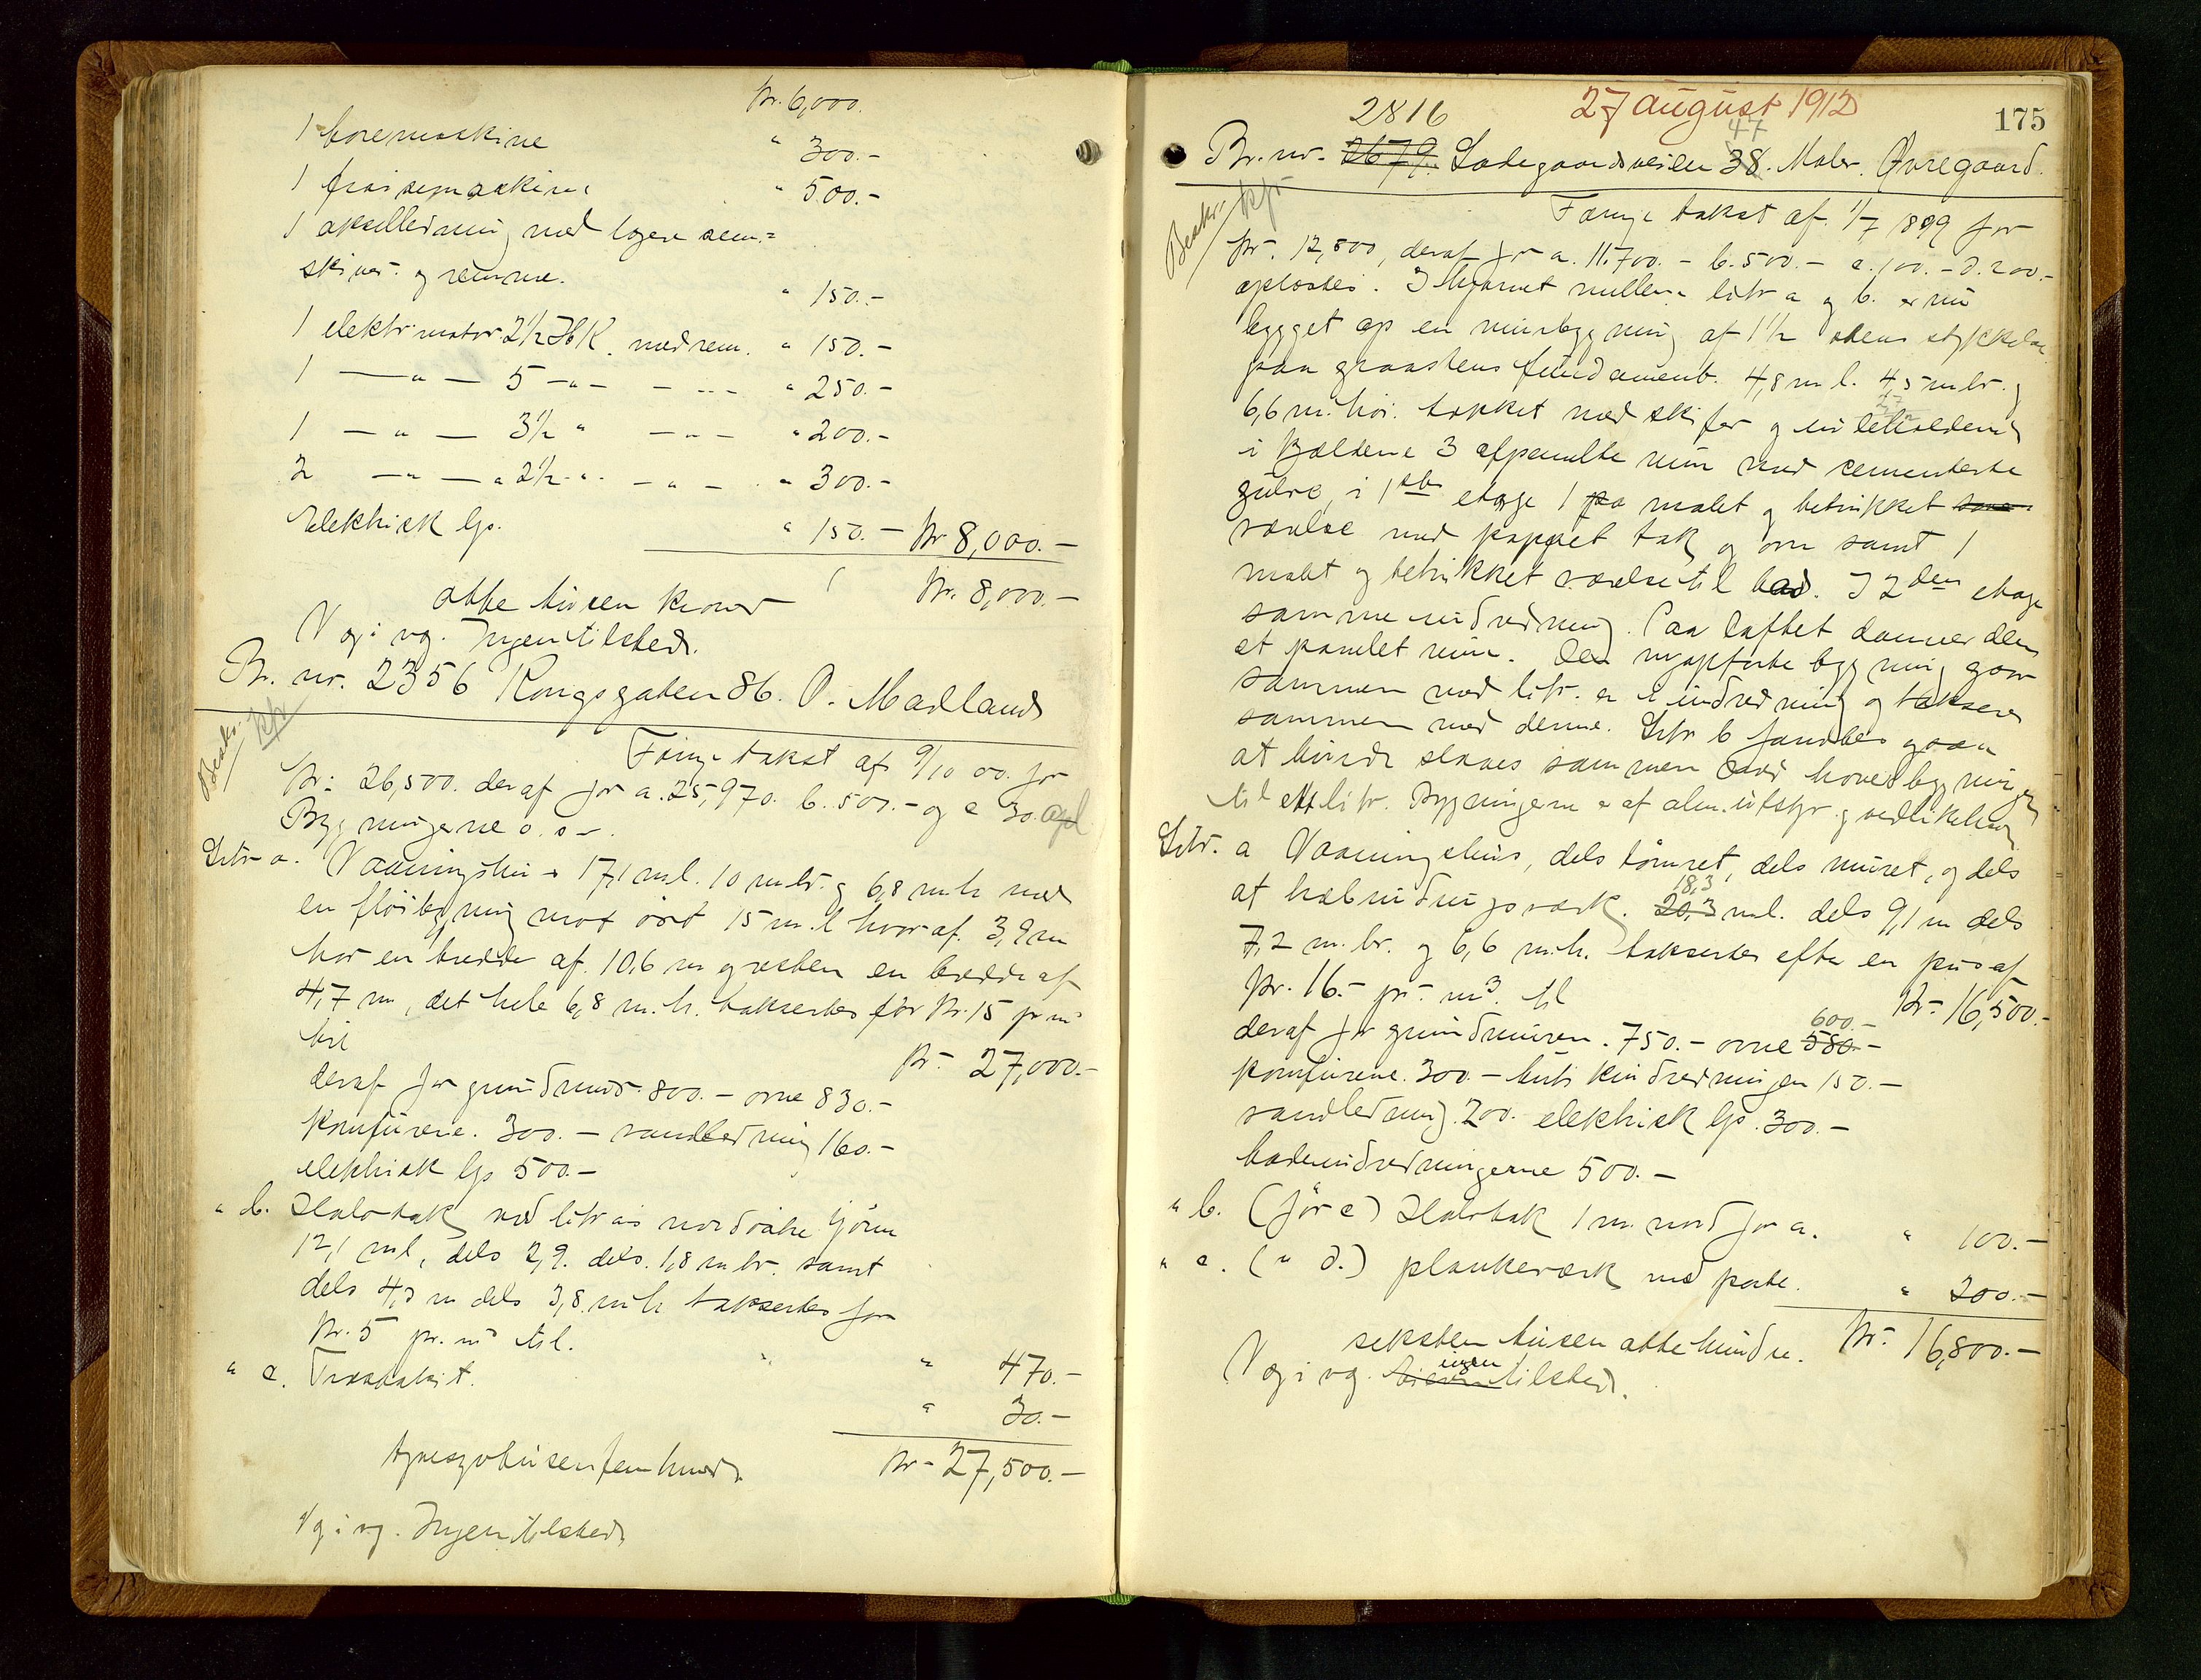 kr. 6,000.
1 boremaskine " 300.-
1 fraisemaskine " 500.-
1 akselledning med lagere rem=
skiver og remme. " 150.-
1 elektr. motor 2½ HK. med rem. " 150.-
1 — " — 5 -"- - -- - " 250.-
1 — " — 3½ " — " - " 200.-
2 — " — " 2½ " - " - " 300.-
Elektrisk lys. " 150.- kr 8,000.-
otte tusen kroner kr. 8,000.-
V og i vg. Ingen tilsted.
Br. nr. 2356 Kongsgaten 86. O. Madland
Beskr. kfr
Forrige takst af 9/10 00. for
kr: 26,500. deraf for a. 25,970. b. 500.- og c 30.
Bygningerne o.s.v.
Litr a. Vaaningshus 17,1 m l. 10 m br. og 6,8 m h med
en fløibygning mot øst 15 m. l hvoraf. 3,9 m
har en bredde af. 10,6 m og resten en bredde af
4,7 m, det hele 6,8 m. h. takseres før kr. 15 pr m³
til kr- 27,000.-
deraf for grundmur 800.- ovne 830.-
komfurene. 300.- vandledning 160.-
elektrisk lys 500.-
" b. Halvtak ved litr as nordvestre hjørne
12,1 m l, dels 2,9. dels. 1,8 m br. samt
dels 4,3 m dels 3,8. m h takseres for
kr. 5 pr. m³ til. " 470.-
" c. Træstakit. " 30.-
tyvesyvtusenfemhund. kr- 27,500.-
V g i vg. Ingen tilsted
2816 27 august 1912
175
47
Br. nr. 2679. Ladegaardsveien 38. Maler. Øvregaard.
Beskr. kfr
Forrige takst af. 1/7 1899 for
kr. 12,500, deraf for a. 11.700.- b. 500.- c. 100.- d. 200.-
opløstes. I hjørnet mellem litr a og b. er nu
bygget op en murbygning af 1½ stens tykkelse
paa graastens fundament. 4,8 m l. 4,5 m br. og
6,6 m. høi. tækket med skifer og indeholdend
i kjelderne 3 afpanelte rum med cementerte
gulve, i 1ste etage 1 pa malet og betrukket
værelse med pappet tak og ovn samt 1
malet og betrukket værelse til bad. I 2den etage
samme indredning. Paa loftet danner den
et panelet rum. Den nyopførte bygning gaar
sammen med litr. a i indredning og takseres
sammen med denne. Litr b fandtes ogsaa
at burde slaaes sammen med hovedbygningen
til ett litr. Bygningerne e af alm. utstyr og vedlikehold
Litr. a Vaaningshus, dels tømret, dels muret, og dels
af halvbindingsverk. 20,3 18,3 m l. dels 9,1 m dels
7,2 m. br. og 6,6 m. h. takseres efter en pris af
kr. 16.- pr. m³. til kr- 16,500.-
deraf for grundmuren. 750.- ovne 580.- 600.-
komfurene. 300.- butikindredningen 150.-
vandledning 200. elektrisk lys. 300.-
badeindredningerne 500.-
" b. (før c) Halvtak 1 m. nord for a. " 100.-
" c. (" d.) plankeverk med porte. " 200.-
seksten tusen ottehundre. kr- 16,800.-
V og i vg. ingen tilsted.